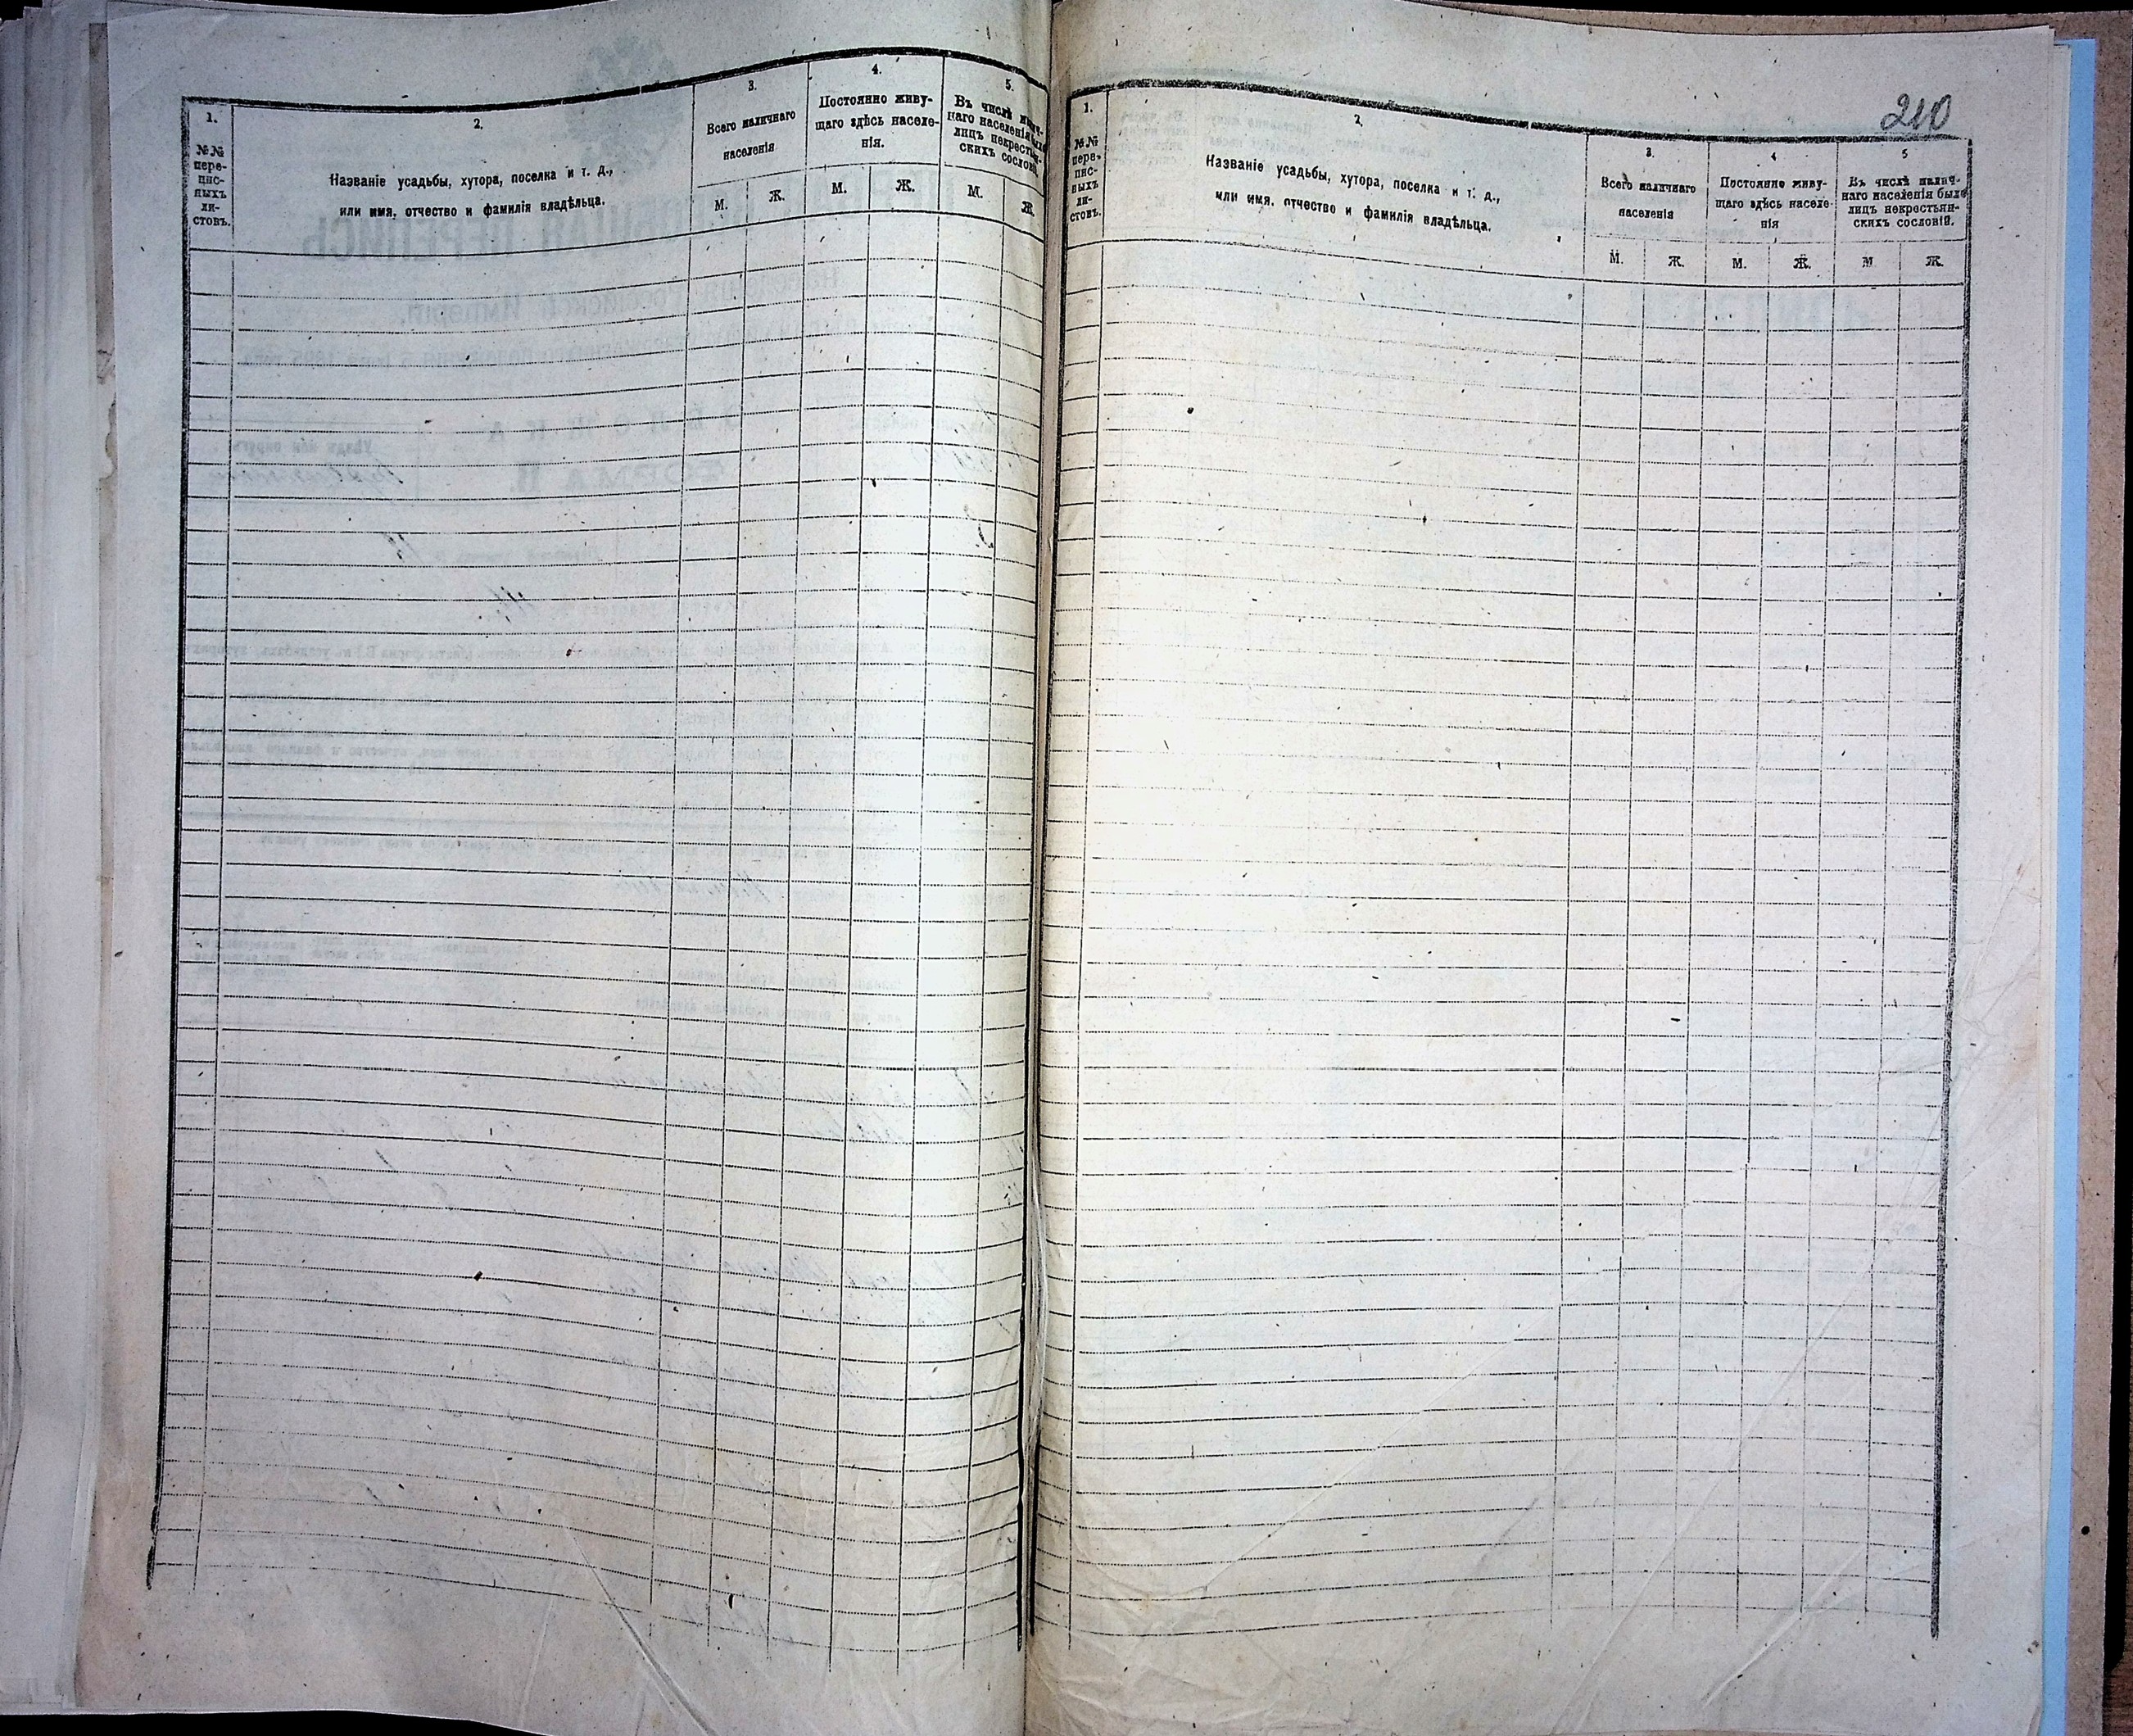 210
1.
№№
пере-
пис-
ныхъ
ли-
стовъ.
2.
Названіе усадьбы, хутора, поселка и т. д.,
или имя, отчество и фамилія владѣльца.
3.
Всего наличнаго
населенія
М. Ж.
4.
Постоянно живу-
щаго здѣсь населе-
нія.
М. Ж.
5.
Въ числѣ налич-
наго населенія было
лицъ некрестьян-
скихъ сословій.
М. Ж.
1.
№№
пере-
пис-
ныхъ
ли-
стовъ.
2.
Названіе усадьбы, хутора, поселка и т. д.,
или имя, отчество и фамилія владѣльца.
3.
Всего наличнаго
населенія
М. Ж.
4
Постоянно живу-
щаго здѣсь населе-
нія
М. Ж.
5
Въ числѣ налич-
наго населенія было
лицъ некрестьян-
скихъ сословій.
М Ж.